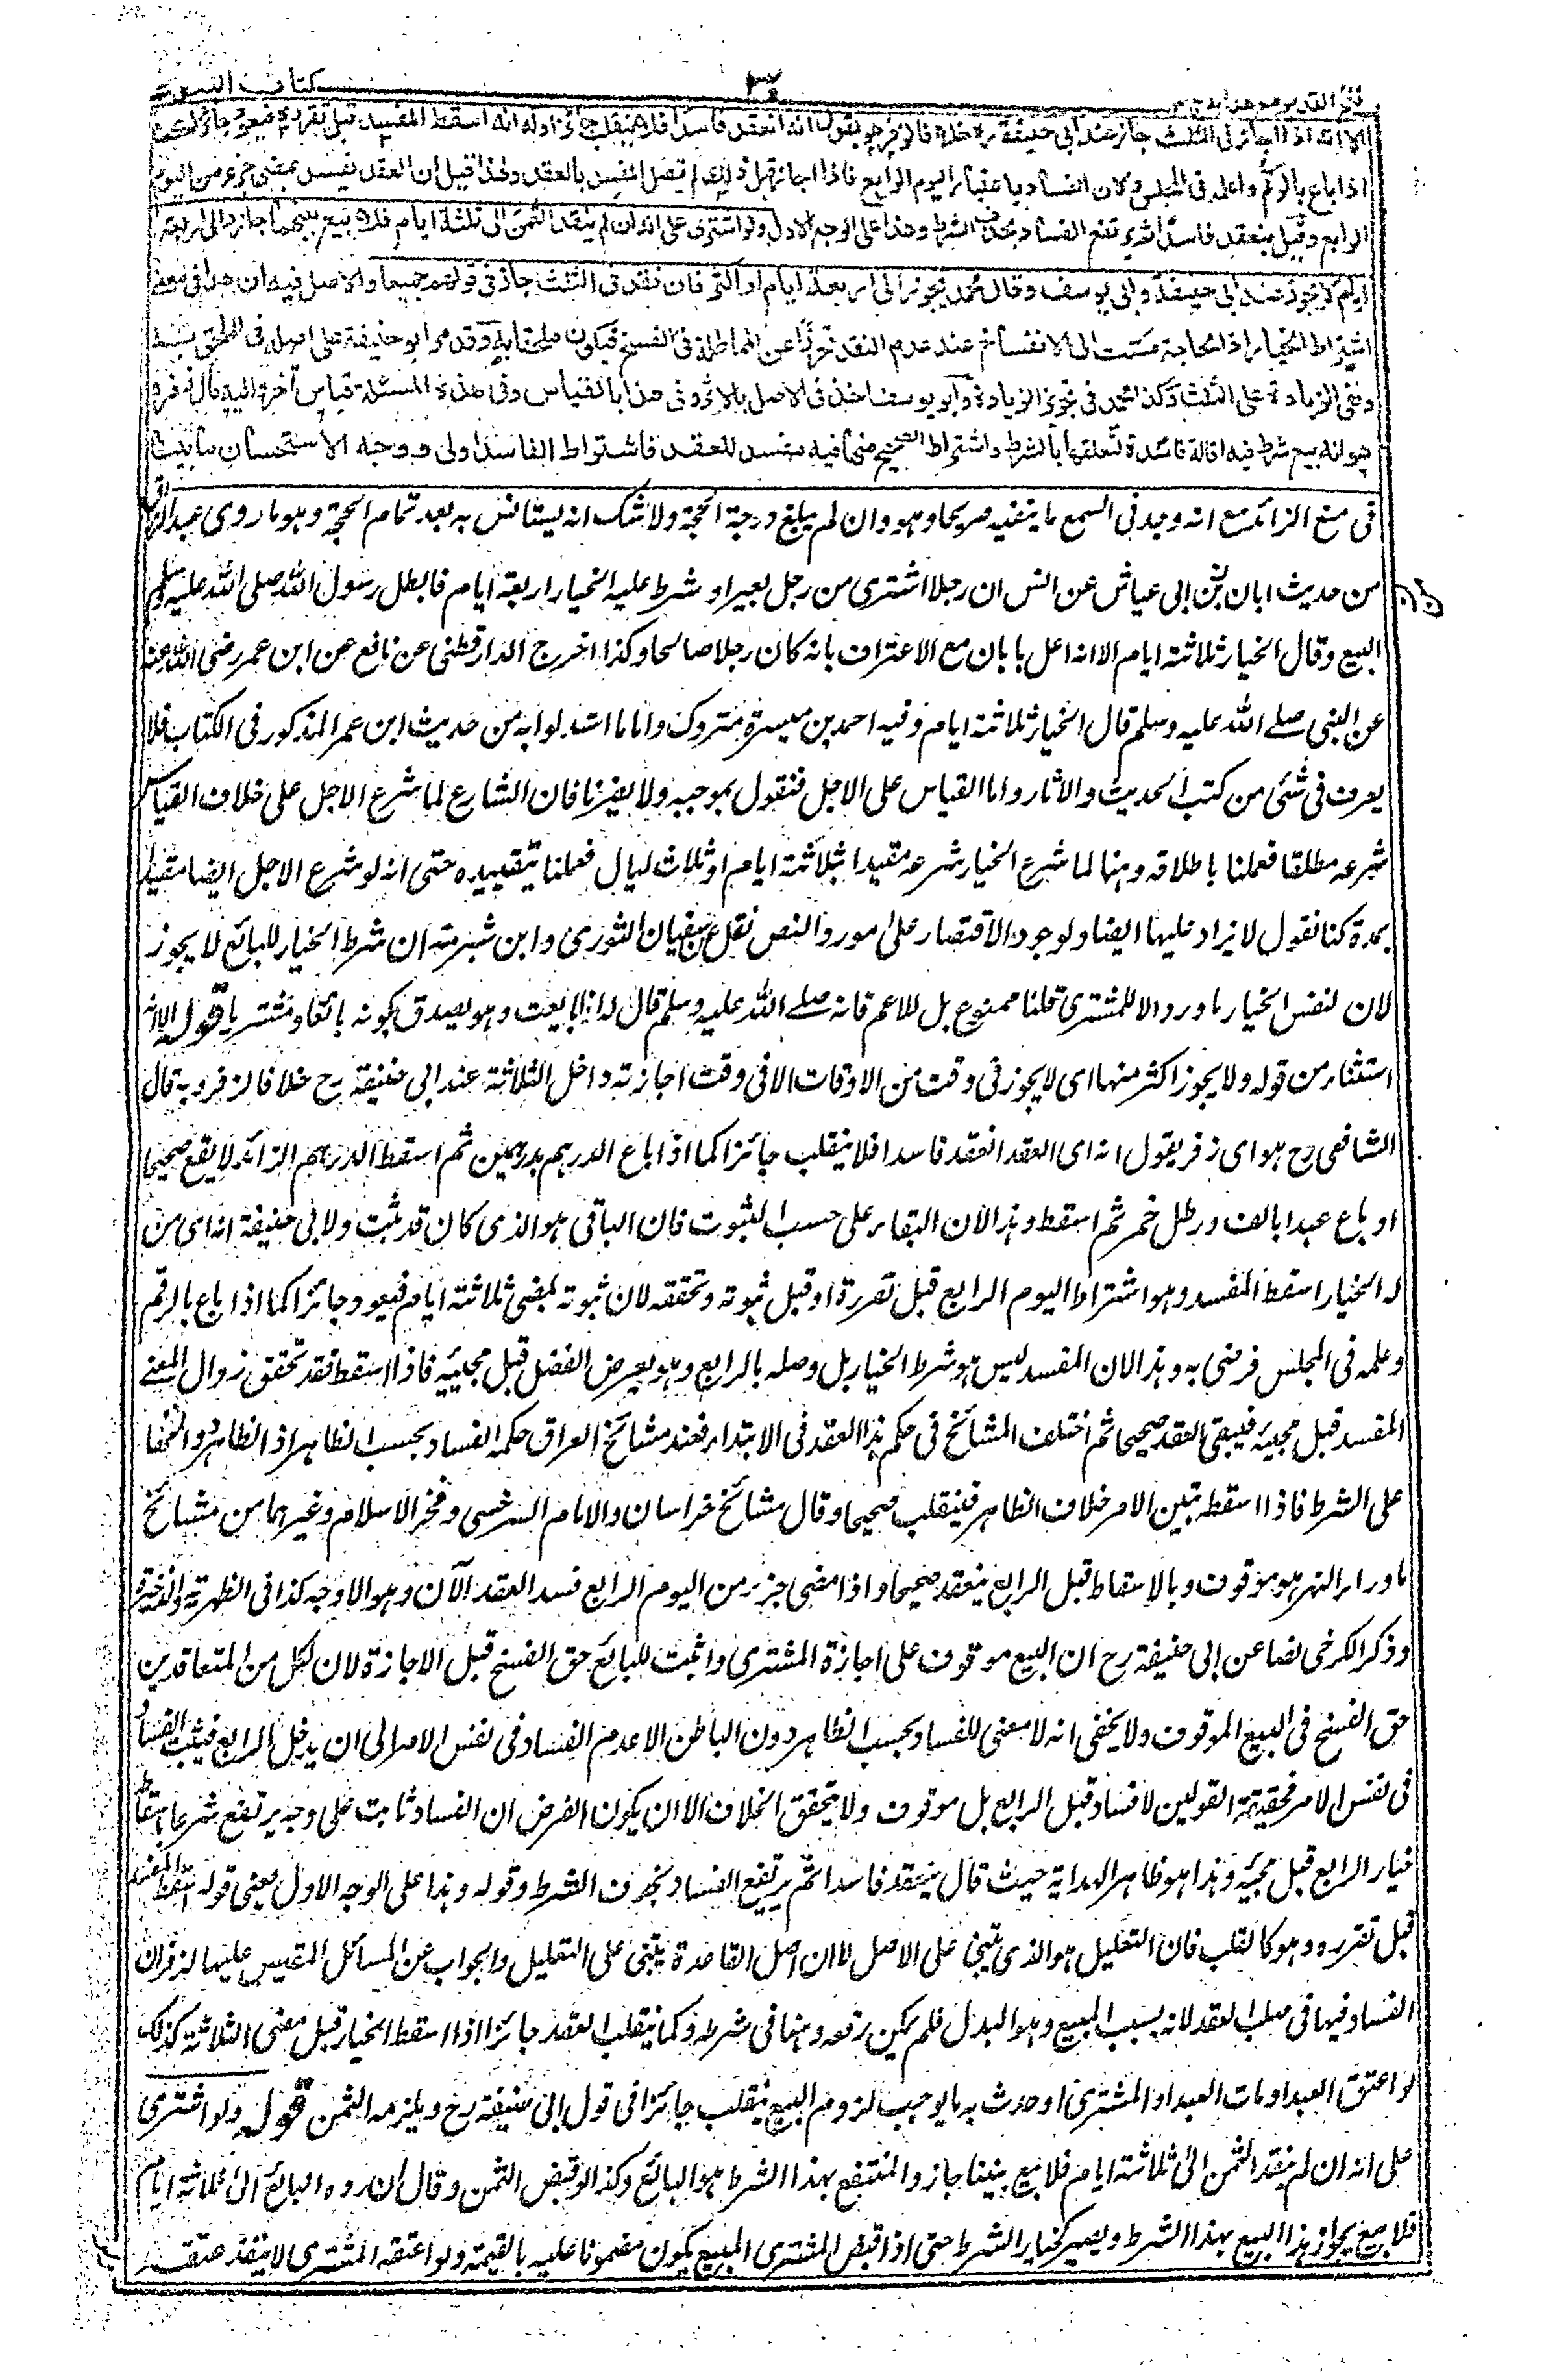 فتح القدير مع هداية ج ٣ كتاب البيوع
الا انه اذا اجاز في الثلث جاز عند ابي حنيفة رح خلافا لزفر هو يقول انه انعقد فاسدا فلا ينقلب جائزا وله انه اسقط المفسد قبل تقرره فيعود جائزا كما
اذا باع بالرقم واعلمه في المجلس ولان الفساد باعتبار اليوم الرابع فاذا اجاز قبل ذلك لم يتصل المفسد بالعقد ولهذا قيل ان العقد يفسد بمضي جزء من اليوم
الرابع وقيل ينعقد فاسدا ثم يرتفع الفساد بحذف الشرط وهذا على الوجه الاول ولو اشترى على انه ان لم ينقد الثمن الى ثلثة ايام فلا بيع بينهما جاز والى اربعة
ايام لا يجوز عند ابي حنيفة وابي يوسف وقال محمد يجوز الى اربعة ايام او اكثر فان نقد في الثلث جاز في قولهم جميعا والاصل فيه ان هذا في معنى
اشتراط الخيار اذ الحاجة مست الى الانفساخ عند عدم النقد تحرزا عن المماطلة في الفسخ فيكون ملحقا به وقد مر ابو حنيفة على اصله في الملحق به
ونفى الزيادة على الثلث وكذا محمد في تجويز الزيادة وابو يوسف اخذ في الاصل بالاثر وفي هذا بالقياس وفي هذه المسئلة قياس آخر واليه مال زفر
وهو انه بيع شرط فيه اقالة فاسدة لتعلقها بالشرط واشتراط الصحيح منها فيه مفسد للعقد فاشتراط الفاسد اولى ووجه الاستحسان ما بينا
في منع الزائد مع انه وجد في السمع ما ينفيه صريحا وهو وان لم يبلغ درجة الحجة ولا شك انه يستانس به بعد تمام الحجة وهو ما روى عبد الرزاق
من حديث ابان بن ابي عياش عن انس ان رجلا اشترى من رجل بعيرا وشرط عليه الخيار اربعة ايام فابطل رسول الله صلى الله عليه وسلم
البيع وقال الخيار ثلاثة ايام الا انه اعل بابان مع الاعتراف بانه كان رجلا صالحا وكذا اخرج الدارقطني عن نافع عن ابن عمر رضى الله عنه
عن النبي صلے الله عليه وسلم قال الخيار ثلاثة ايام وفيه احمد بن ميسرة متروك واما ما استدلوا به من حديث ابن عمر المذكور في الكتاب فلا
يعرف في شئ من كتب الحديث والاثار واما القياس على الاجل فنقول بموجبه ولا يضرنا فان الشارع لما شرع الاجل على خلاف القياس
شرعه مطلقا فعملنا باطلاقه وهنا لما شرع الخيار شرعه مقيدا بثلاثة ايام او ثلاث ليال فعملنا بتقييده حتى انه لو شرع الاجل ايضا مقيدا
بمدة كنا نقول لا يزاد عليها ايضا ولوجود الاقتصار على مورد النص نقل عن سفيان الثوري وابن شبرمة ان شرط الخيار للبائع لا يجوز
لان لنفس الخيار ما ورد الا للمشترى قلنا ممنوع بل للاعم فانه صلے الله عليه وسلم قال له اذا بايعت وهو يصدق بكونه بائعا ومشتريا قوله الا انه
استثناء من قوله ولا يجوز اكثر منها اى لا يجوز في وقت من الاوقات الا في وقت اجازته داخل الثلاثة عند ابي حنيفة رح خلافا لزفر وبه قال
الشافعى رح هو اى زفر يقول انه اى العقد انعقد فاسدا فلا ينقلب جائزا كما اذا باع الدرهم بدرهمين ثم اسقط الدرهم الزائد لا يقع صحيحا
او باع عبدا بالف ورطل خمر ثم اسقط وهذا لان البقاء على حسب الثبوت فان الباقي هو الذي كان قد ثبت ولابي حنيفة انه اى من
له الخيار اسقط المفسد وهو اشتراط اليوم الرابع قبل تقرره او قبل ثبوته وتحققه لان ثبوته بمضي ثلاثة ايام فيعود جائزا كما اذا باع بالرقم
وعلمه في المجلس فرضى به وهذا لان المفسد ليس هو شرط الخيار بل وصله بالرابع وهو بعرض الفضل قبل مجيئه فاذا اسقط فقد تحقق زوال المعنى
المفسد قبل مجيئه فيبقى العقد صحيحا ثم اختلف المشائخ في حكم هذا العقد في الابتداء فعند مشائخ العراق حكمه الفساد بحسب الظاهر اذ الظاهر دوامهما
على الشرط فاذا اسقط تبين الامر خلاف الظاهر فينقلب صحيحا وقال مشائخ خراسان والامام السرخسي وفخر الاسلام وغيرهما من مشائخ
ما وراء النهر هو موقوف وبالاسقاط قبل الرابع ينعقد صحيحا واذا مضى جزء من اليوم الرابع فسد العقد الآن وهو الاوجه كذا في الظهيرية والذخيرة
وذكر الكرخي نصا عن ابي حنيفة رح ان البيع موقوف على اجازة المشترى واثبت للبائع حق الفسخ قبل الاجازة لان لكل من المتعاقدين
حق الفسخ في البيع الموقوف ولا يخفى انه لا معنى للفساد بحسب الظاهر دون الباطن الا عدم الفساد في نفس الامر الى ان يدخل الرابع فيثبت الفساد
في نفس الامر فحقيقة القولين لا فساد قبل الرابع بل موقوف ولا يتحقق الخلاف الا ان يكون الفرض ان الفساد ثابت على وجه يرتفع شرعا باسقاط
خيار الرابع قبل مجيئه وهذا هو ظاهر الهداية حيث قال ينعقد فاسدا ثم يرتفع الفساد بحذف الشرط وقوله وهذا على الوجه الاول يعني قوله اسقط المفسد
قبل تقرره وهو كالقلب فان التعليل هو الذي يبتني على الاصل لا ان اصل القاعدة يبتني على التعليل والجواب عن المسائل المقيس عليها لزفر ان
الفساد فيها في صلب العقد لانه بسبب المبيع وهو البدل فلم يمكن رفعه وهنا في شرطه وكما ينقلب العقد جائزا اذا اسقط الخيار قبل مضى الثلاثة كذلك
لو اعتق العبد او مات العبد او المشترى او حدث به ما يوجب لزوم البيع ينقلب جائزا في قول ابي حنيفة رح ويلزمه الثمن قوله ولو اشترى
على انه ان لم ينقد الثمن الى ثلاثة ايام فلا بيع بيننا جاز والمنتفع بهذا الشرط هو البائع وكذا لو قبض الثمن وقال ان رده البائع الى ثلاثة ايام
فلا بيع يجوز هذا البيع بهذا الشرط ويصير كخيار الشرط حتى اذا قبض المشترى المبيع يكون مضمونا عليه بالقيمة ولو اعتقه المشترى لا ينفذ عتقه